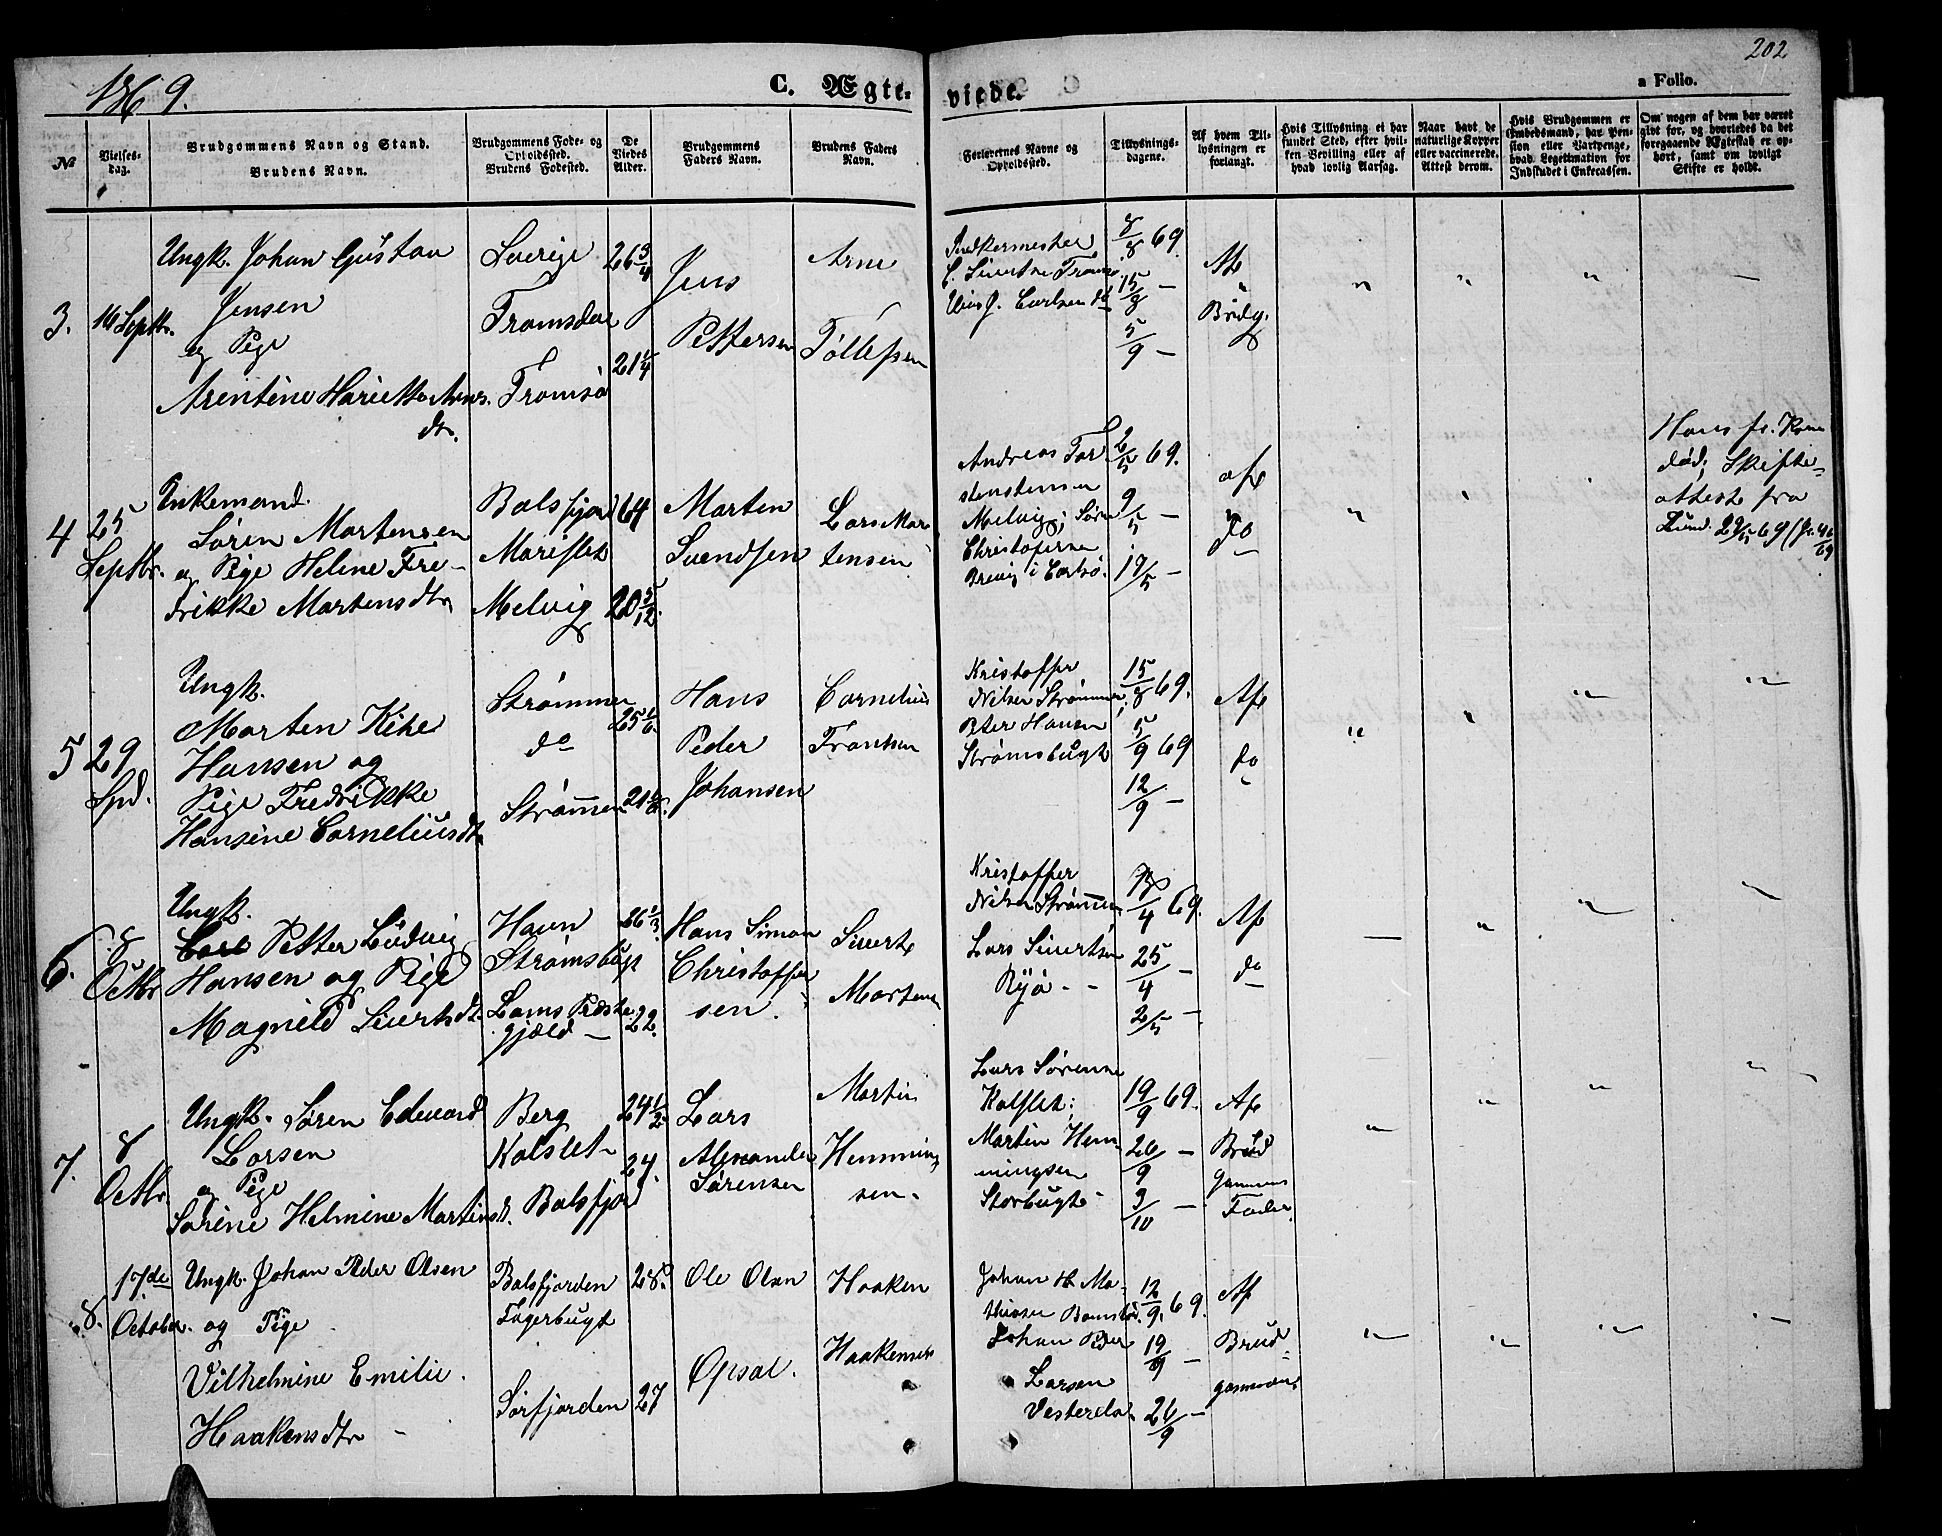 1869.
C. Ægte-
viede.
202
a Folio.
№
Vielses-
dag.
Brudgommens Navn og Stand.
Brudens Navn.
Brudgommens Føde- og
Opholdssted.
Brudens Fødested.
De
Viedes
Alder.
Brudgommens
Faders Navn.
Brudens Faders
Navn.
Forlovernes Navne og
Opholdssted.
Tillysnings-
dagene.
Af hvem Til-
lysningen er
forlangt.
Hvis Tillysning ei har
fundet Sted, efter hvil-
ken Bevilling eller af
hvad lovlig Aarsag.
Naar havt de
naturlige Kopper
eller vaccinerede.
Attest derom.
Hvis Brudgommen er
Embedsmand, har Pen-
sion eller Vartpenge,
hvad Legitimation for
Indskudet i Enkecassen.
Om nogen af dem har været
gift før, og hvorledes da det
foregaaende Ægteskab er op-
hørt, samt om lovligt
Skifte er holdt.
3.
16 Septbr.
Ungk. Johan Gustav
Jensen
og Pige
Arentine Hariette Arns
dtr.
Sverige
Tromsdal
Tromsø
26 3/4
21 1/4
Jens
Pettersen
Arne
Tollefsen
C. Sivertsen Tromsø
J. Carlsen do
8/8 69.
15/8 —
5/9 —
Af
Brudg.
4
25
Septbr.
Enkemand
Søren Martensen
og Pige Helene Fre-
drikke Martensdtr
Balsfjord
Melvig
64
20 5/12
Morten
Svendsen
Lars Mar
tensen
Andreas Tor
stensensen
Melvig; Søren
Christofersen
2/5 69.
9/5 —
17/5 —
af
do
Hans fr. Kone
død; Skifte-
attest fra
5
29
Spt.
Ungk.
Morten Kihe
Hansen og
Pige Fredrikke
Hansine Corneliusdtr
Strømmen
do
Strømmen
25 1/6
Hans
Peder
Johansen
Cornelius
Frantsen
Kristoffer
Nilsen Strømmen
Peter Hansen
Strømsbugt
15/8 69.
5/9 69
12/9 —
Af
do
6.
8
Octbr
Ungk.
Carl Petter Ludvig
Hansen og Pige
Magnild Sivertsdtr
Havn
Strømsbugt
Lams Præste
gjæld —
26 1/3
22.
Hans Simon
Christoffer
sen.
Sivert
Morten
Kristoffer
Nilsen Strømmen
Lars Sivertsen
Ryø - -
69.
25/4 —
2/5 —
Af
do
7.
8
Octbr.
Ungk. Søren Edevard
Larsen
og Pige
Sørine Helmine Martinsd.
Berg
Kalslet
Balsfjord
24 1/2
24.
Lars
Alexander
Sørensen
Martin
Hemming
sen.
Lars Sørensen
Kalslet;
Martin Hem
mingsen
Storbugt
19/9 69.
26/9 —
3/10 —
Af
Brud
gommens
Fader.
8.
17de
October
Ungk. Johan Peder Olsen
og Pige
Vilhelmine Emilie
Haakensdtr
Balsfjorden
Fagerbugt
Sørfjorden
28.
27
Ole Olsen
Opsal.
Haaken
Haakensen
Johan H. Ma-
thisen
Johan Peder
Larsen
Vesterdal
12/9 69.
19/9 —
26/9 —
Af
Brud-
gommen